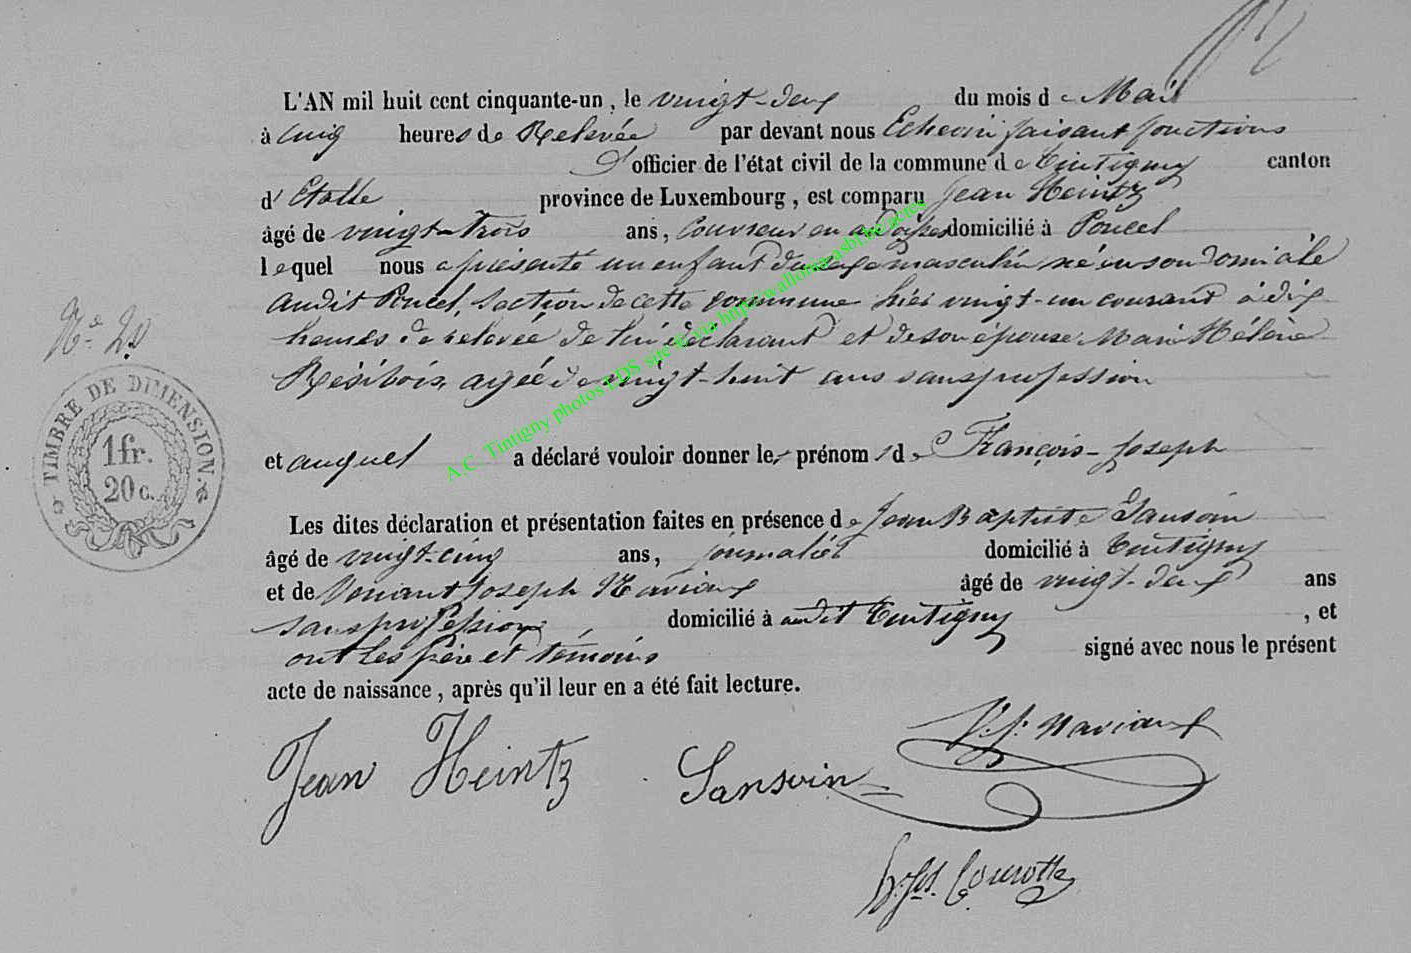 L'AN mil huit cent cinquante-un, le vingt-deux du mois de Mai
à cinq heures de Relevée par devant nous Echevin faisant fonctions
d'officier de l'état civil de la commune de Tintigny canton
d'Etalle province de Luxembourg, est comparu Jean Heintz
âgé de vingt-trois ans, Couvreur en ardoises domicilié à Poncel
lequel nous a présenté un enfant du sexe masculin né en son domicile
audit Poncel, section de cette commune hier vingt-un courant à dix
heures de relevée de lui déclarant et de son épouse Marie Hélène
Résibois, agée de vingt-huit ans sans profession
No.
TIMBRE DE DIMENSION.
1 fr.
20 c.
et auquel a déclaré vouloir donner les prénoms de François-Joseph
Les dites déclaration et présentation faites en présence de Jean Baptiste Sansoin
âgé de vingt-cinq ans, journalier domicilié à Tintigny
et de Joseph Naviaux âgé de vingt-deux ans
sans profession, domicilié à audit Tintigny, et
ont les père et témoins signé avec nous le présent
acte de naissance, après qu'il leur en a été fait lecture.
Jean Heintz Sansoin V. J. Naviaux
A.C. Tintigny photos EDS site via http://wallonia-asbl.be/actes